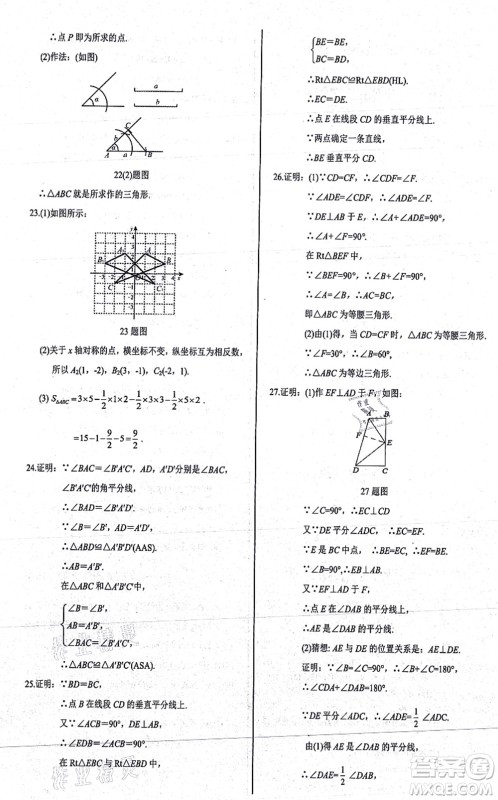 ∴点 P 即为所求的点.
(2)作法：(如图)
a
α
b
C
b
α
A a B
22(2)题图
∴△ABC 就是所求作的三角形.
23.(1)如图所示：
23 题图
(2)关于 x 轴对称的点，横坐标不变，纵坐标互为相反数，
所以 A₂(1，-2)，B₂(3，-1)，C₂(-2，1).
(3) S△ABC=3×5-1/2×1×2-1/2×3×3-1/2×2×5
=15-1-9/2-5=9/2.
24.证明：∵∠BAC=∠B′A′C′，AD，A′D′分别是∠BAC，
∠B′A′C′的角平分线，
∴∠BAD=∠B′A′D′.
∵∠B=∠B′，AD=A′D′，
∴△ABD≌△A′B′D′(AAS).
∴AB=A′B′.
在△ABC 和△A′B′C′中，
∠B=∠B′，
AB=A′B′，
∠BAC=∠B′A′C′，
∴△ABC≌△A′B′C′(ASA).
25.证明：∵BD=BC，
∴点 B 在线段 CD 的垂直平分线上.
又∵∠ACB=90°，DE⊥AB，
∴∠ECB=∠EDB=90°.
在 Rt△EBC 与 Rt△EBD 中，
BE=BE，
BC=BD，
∴Rt△EBC≌Rt△EBD(HL).
∴EC=DE.
∴点 E 在线段 CD 的垂直平分线上.
∵两点确定一条直线，
∴BE 垂直平分 CD.
26.证明：(1)∵CD=CF，∴∠CDF=∠F.
∵∠ADE=∠CDF，∴∠ADE=∠F.
∵DE⊥AB 于 E，∴∠A+∠ADE=90°，
∴∠A+∠F=90°.
在 Rt△BEF 中，
∵∠BEF=90°，∴∠B+∠F=90°，
∴∠A=∠B，∴AC=BC，
即△ABC 为等腰三角形.
(2)由(1)得，当 CD=CF 时，△ABC 为等腰三角形.
∵∠F=30°，∴∠B=60°，
∴△ABC 为等边三角形.
27.证明：(1)作 EF⊥AD 于 F，如图：
A B
F
E
D C
27 题图
∵∠C=90°，∴EC⊥CD
又∵DE 平分∠ADC，∴EC=EF.
∵E 是 BC 中点，∴BE=EC，∴BE=EF.
∵∠B=90°，∴EB⊥AB.
又∵EF⊥AD 于 F，
∴点 E 在∠DAB 的平分线上，
∴AE 是∠DAB 的平分线.
(2)猜想：AE 与 DE 的位置关系是：AE⊥DE
证明：∵∠B=∠C=90°，∴∠B+∠C=180°，
∴∠DAB+∠ADC=180°.
∵DE 平分∠ADC，∴∠ADE=1/2∠ADC.
由(1)得 AE 是∠DAB 的平分线，
∴∠DAE=1/2∠DAB，
答案圈
MXQE.COM